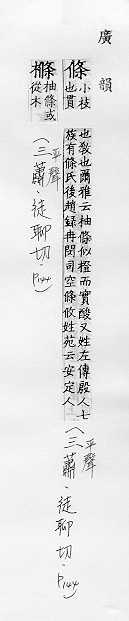 廣韻
條 小枝也貫
也教也爾雅云柚條似橙而實酸又姓左傳殷人七
族有條氏後趙録冉閔司空條攸姓苑云安定人
(平聲 三蕭．徒聊切．P144)
樤 柚條或從木
(平聲 三蕭．徒聊切．P144)